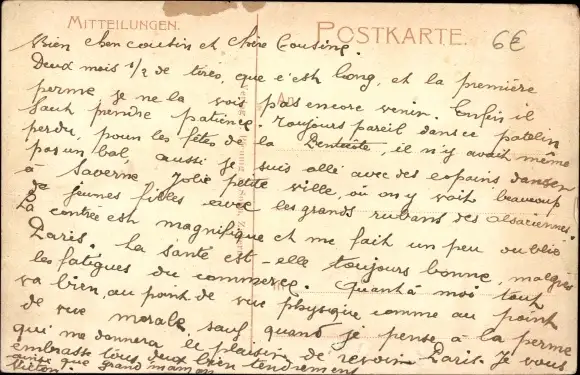 MITTEILUNGEN.
POSTKARTE.
6€
Bien cher cousin et chère Cousine.
Deux mois 1/2 de tirés, que c'est long, et la première
perme je ne la vois pas encore venir. Enfin il
faut prendre patience. Toujours pareil dans ce patelin
perdu, pour les fêtes de la Pentecôte, il n'y avait même
pas un bal aussi je suis allé avec des copains danser
à Saverne Jolie petite ville, où on y voit beaucoup
de jeunes filles avec les grands rubans des alsaciennes.
La contrée est magnifique et me fait un peu oublier
Paris. La santé est-elle toujours bonne, malgrés
les fatigues du commerce. Quant à moi tout
va bien, au point de vue physique comme au point
de vue morale, sauf quand je pense à la perme
qui me donnera le plaisir de revoir Paris. Je vous
embrasse tous deux bien tendrement
ainsi que grand maman